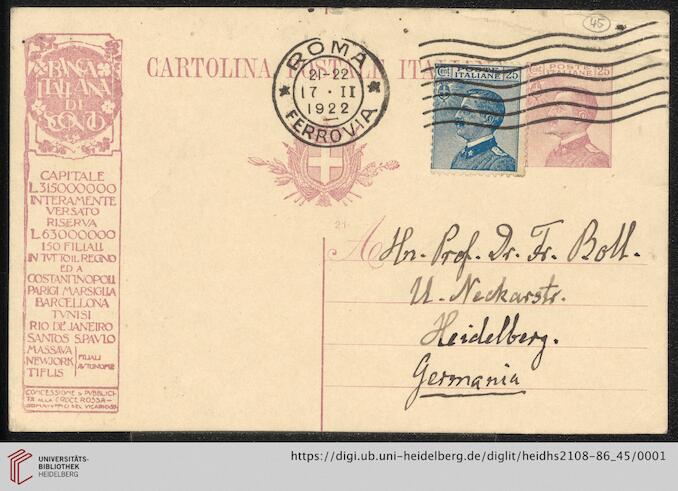 45
BANCA
ITALIANA
DI
SCONTO
CARTOLINA POSTALE ITALIANA
ROMA
21-22
17 · II
1922
FERROVIA
POSTE
ITALIANE 25
POSTE
ITALIANE 25
CAPITALE
L.315000000
INTERAMENTE
VERSATO
RISERVA
L.63000000
150 FILIALI
IN TVTTO IL REGNO
ED A
COSTANTINOPOLI
PARIGI MARSIGLIA
BARCELLONA
TVNISI
RIO DE JANEIRO
SANTOS S.PAVLO
MASSAVA
NEW JORK
TIFLIS
FILIALI
AVTONOME
CONCESSIONE DI PVBBLICI-
TÀ ALLA CROCE ROSSA-
21
A Hn. Prof. Dr. Fr. Boll.
U. Neckarstr.
Heidelberg.
Germania
UNIVERSITÄTS-
BIBLIOTHEK
HEIDELBERG
https://digi.ub.uni-heidelberg.de/diglit/heidhs2108-86_45/0001